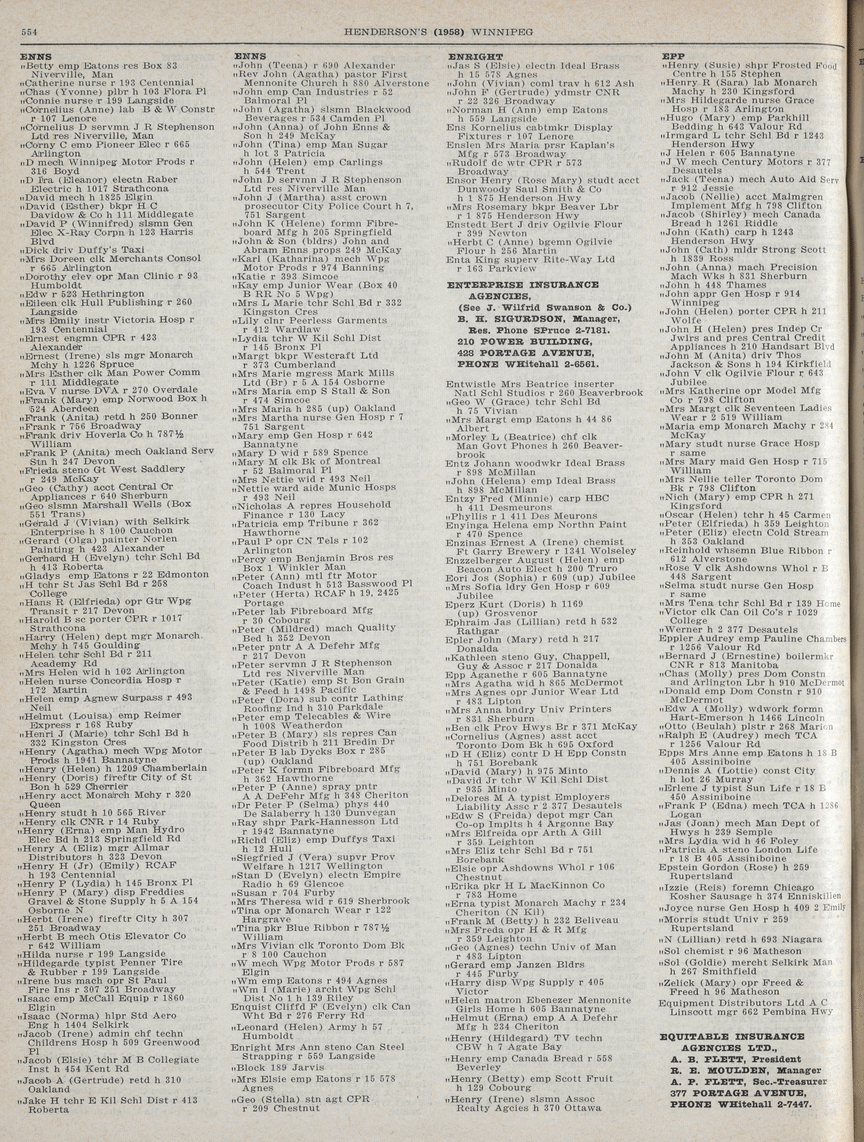 554
HENDERSON'S (1958) WINNIPEG
ENNS
"Betty emp Eatons res Box 83
Niverville, Man
"Catherine nurse r 193 Centennial
"Chas (Yvonne) plbr h 103 Flora Pl
"Connie nurse r 199 Langside
"Cornelius (Anne) lab B & W Constr
r 107 Lenore
"Cornelius D servmn J R Stephenson
Ltd res Niverville, Man
"Corny C emp Pioneer Elec r 665
Arlington
"D mech Winnipeg Motor Prods r
316 Boyd
"D Ira (Eleanor) electn Raber
Electric h 1017 Strathcona
"David mech h 1825 Elgin
"David (Esther) bkpr H C
Davidow & Co h 111 Middlegate
"David P (Winnifred) slsmn Gen
Elec X-Ray Corpn h 123 Harris
Blvd
"Dick driv Duffy's Taxi
"Mrs Doreen clk Merchants Consol
r 665 Arlington
"Dorothy elev opr Man Clinic r 93
Humboldt
"Edw r 523 Hethrington
"Eileen clk Hull Publishing r 260
Langside
"Mrs Emily instr Victoria Hosp r
193 Centennial
"Ernest engmn CPR r 423
Alexander
"Ernest (Irene) sls mgr Monarch
Mchy h 1226 Spruce
"Mrs Esther clk Man Power Comm
r 111 Middlegate
"Eva V nurse DVA r 270 Overdale
"Frank (Mary) emp Norwood Box h
524 Aberdeen
"Frank (Anita) retd h 250 Bonner
"Frank r 756 Broadway
"Frank driv Hoverla Co h 787½
William
"Frank P (Anita) mech Oakland Serv
Stn h 247 Devon
"Frieda steno Gt West Saddlery
r 249 McKay
"Geo (Cathy) acct Central Cr
Appliances r 640 Sherburn
"Geo slsmn Marshall Wells (Box
551 Trans)
"Gerald J (Vivian) with Selkirk
Enterprise h 8 100 Cauchon
"Gerard (Olga) painter Norlen
Painting h 423 Alexander
"Gerhard H (Evelyn) tchr Schl Bd
h 413 Roberta
"Gladys emp Eatons r 22 Edmonton
"H tchr St Jas Schl Bd r 258
College
"Hans R (Elfrieda) opr Gtr Wpg
Transit r 217 Devon
"Harold B sc porter CPR r 1017
Strathcona
"Harry (Helen) dept mgr Monarch
Mchy h 745 Goulding
"Helen tchr Schl Bd r 211
Academy Rd
"Mrs Helen wid h 102 Arlington
"Helen nurse Concordia Hosp r
172 Martin
"Helen emp Agnew Surpass r 493
Neil
"Helmut (Louisa) emp Reimer
Express r 168 Ruby
"Henri J (Marie) tchr Schl Bd h
332 Kingston Cres
"Henry (Agatha) mech Wpg Motor
Prods h 1941 Bannatyne
"Henry (Helen) h 1209 Chamberlain
"Henry (Doris) fireftr City of St
Bon h 529 Cherrier
"Henry acct Monarch Mchy r 320
Queen
"Henry studt h 10 565 River
"Henry clk CNR r 14 Ruby
"Henry (Erna) emp Man Hydro
Elec Bd h 213 Springfield Rd
"Henry A (Eliz) mgr Allmar
Distributors h 323 Devon
"Henry H (Jr) (Emily) RCAF
h 193 Centennial
"Henry P (Lydia) h 145 Bronx Pl
"Henry P (Mary) disp Freddies
Gravel & Stone Supply h 5 A 154
Osborne N
"Herbt (Irene) fireftr City h 307
251 Broadway
"Herbt B mech Otis Elevator Co
r 642 William
"Hilda nurse r 199 Langside
"Hildegarde typist Penner Tire
& Rubber r 199 Langside
"Irene bus mach opr St Paul
Fire Ins r 307 251 Broadway
"Isaac emp McCall Equip r 1860
Elgin
"Isaac (Norma) hlpr Std Aero
Eng h 1404 Selkirk
"Jacob (Irene) admin chf techn
Childrens Hosp h 509 Greenwood
Pl
"Jacob (Elsie) tchr M B Collegiate
Inst h 454 Kent Rd
"Jacob A (Gertrude) retd h 310
Oakland
"Jake H tchr E Kil Schl Dist r 413
Roberta
ENNS
"John (Teena) r 690 Alexander
"Rev John (Agatha) pastor First
Mennonite Church h 880 Alverstone
"John emp Can Industries r 52
Balmoral Pl
"John (Agatha) slsmn Blackwood
Beverages r 534 Camden Pl
"John (Anna) of John Enns &
Son h 249 McKay
"John (Tina) emp Man Sugar
h lot 3 Patricia
"John (Helen) emp Carlings
h 544 Trent
"John D servmn J R Stephenson
Ltd res Niverville Man
"John J (Martha) asst crown
prosecutor City Police Court h 7,
751 Sargent
"John K (Helene) formn Fibre-
board Mfg h 205 Springfield
"John & Son (bldrs) John and
Abram Enns props 249 McKay
"Karl (Katharina) mech Wpg
Motor Prods r 974 Banning
"Katie r 393 Simcoe
"Kay emp Junior Wear (Box 40
B RR No 5 Wpg)
"Mrs L Marie tchr Schl Bd r 332
Kingston Cres
"Lily clnr Peerless Garments
r 412 Wardlaw
"Lydia tchr W Kil Schl Dist
r 145 Bronx Pl
"Margt bkpr Westcraft Ltd
r 373 Cumberland
"Mrs Marie mgress Mark Mills
Ltd (Br) r 5 A 154 Osborne
"Mrs Maria emp S Stall & Son
r 474 Simcoe
"Mrs Maria h 285 (up) Oakland
"Mrs Martha nurse Gen Hosp r 7
751 Sargent
"Mary emp Gen Hosp r 642
Bannatyne
"Mary D wid r 589 Spence
"Mary M clk Bk of Montreal
r 52 Balmoral Pl
"Mrs Nettie wid r 493 Neil
"Nettie ward aide Munic Hosps
r 493 Neil
"Nicholas A repres Household
Finance r 130 Lacy
"Patricia emp Tribune r 362
Hawthorne
"Paul P opr CN Tels r 102
Arlington
"Percy emp Benjamin Bros res
Box 1 Winkler Man
"Peter (Ann) mtl ftr Motor
Coach Indust h 513 Basswood Pl
"Peter (Herta) RCAF h 19, 2425
Portage
"Peter lab Fibreboard Mfg
r 30 Cobourg
"Peter (Mildred) mach Quality
Bed h 352 Devon
"Peter pntr A A Defehr Mfg
r 217 Devon
"Peter servmn J R Stephenson
Ltd res Niverville Man
"Peter (Katie) emp St Bon Grain
& Feed h 1498 Pacific
"Peter (Dora) sub contr Lathing
Roofing Ind h 310 Parkdale
"Peter emp Telecables & Wire
h 1008 Weatherdon
"Peter B (Mary) sls repres Can
Food Distrib h 211 Bredin Dr
"Peter B lab Dycks Box r 285
(up) Oakland
"Peter K formn Fibreboard Mfg
h 362 Hawthorne
"Peter P (Anne) spray pntr
A A DeFehr Mfg h 348 Cheriton
"Dr Peter P (Selma) phys 440
De Salaberry h 130 Dunvegan
"Ray shpr Park-Hannesson Ltd
r 1942 Bannatyne
"Richd (Eliz) emp Duffys Taxi
h 12 Hull
"Siegfried J (Vera) supvr Prov
Welfare h 1217 Wellington
"Stan D (Evelyn) electn Empire
Radio h 69 Glencoe
"Susan r 704 Furby
"Mrs Theresa wid r 619 Sherbrook
"Tina opr Monarch Wear r 122
Hargrave
"Tina pkr Blue Ribbon r 787½
William
"Mrs Vivian clk Toronto Dom Bk
r 8 100 Cauchon
"W mech Wpg Motor Prods r 587
Elgin
"Wm emp Eatons r 494 Agnes
"Wm I (Marie) archt Wpg Schl
Dist No 1 h 139 Riley
Enquist Cliffd F (Evelyn) clk Can
Wht Bd r 276 Ferry Rd
"Leonard (Helen) Army h 57
Humboldt
Enright Mrs Ann steno Can Steel
Strapping r 559 Langside
"Block 189 Jarvis
"Mrs Elsie emp Eatons r 15 578
Agnes
"Geo (Stella) stn agt CPR
r 209 Chestnut
ENRIGHT
"Jas S (Elsie) electn Ideal Brass
h 15 578 Agnes
"John (Vivian) coml trav h 612 Ash
"John F (Gertrude) ydmstr CNR
r 22 326 Broadway
"Norman H (Ann) emp Eatons
h 559 Langside
Ens Kornelius cabtmkr Display
Fixtures r 107 Lenore
Enslen Mrs Maria prsr Kaplan's
Mfg r 573 Broadway
"Rudolf dc wtr CPR r 573
Broadway
Ensor Henry (Rose Mary) studt acct
Dunwoody Saul Smith & Co
h 1 875 Henderson Hwy
"Mrs Rosemary bkpr Beaver Lbr
r 1 875 Henderson Hwy
Enstedt Bert J driv Ogilvie Flour
r 399 Newton
"Herbt C (Anne) bgemn Ogilvie
Flour h 256 Martin
Enta King superv Rite-Way Ltd
r 163 Parkview
ENTERPRISE INSURANCE
AGENCIES,
(See J. Wilfrid Swanson & Co.)
B. H. SIGURDSON, Manager,
Res. Phone SPruce 2-7181.
210 POWER BUILDING,
428 PORTAGE AVENUE,
PHONE WHitehall 2-6561.
Entwistle Mrs Beatrice inserter
Natl Schl Studios r 260 Beaverbrook
"Geo W (Grace) tchr Schl Bd
h 75 Vivian
"Mrs Margt emp Eatons h 44 86
Albert
"Morley L (Beatrice) chf clk
Man Govt Phones h 260 Beaver-
brook
Entz Johann woodwkr Ideal Brass
r 898 McMillan
"John (Helena) emp Ideal Brass
h 898 McMillan
Entzy Fred (Minnie) carp HBC
h 411 Desmeurons
"Phyllis r 1 411 Des Meurons
Enyinga Helena emp Northn Paint
r 470 Spence
Enzinas Ernest A (Irene) chemist
Ft Garry Brewery r 1341 Wolseley
Enzzelberger August (Helen) emp
Beacon Auto Elect h 200 Truro
Eori Jos (Sophia) r 609 (up) Jubilee
"Mrs Sofia ldry Gen Hosp r 609
Jubilee
Eperz Kurt (Doris) h 1169
(up) Grosvenor
Ephraim Jas (Lillian) retd h 532
Rathgar
Epler John (Mary) retd h 217
Donalda
"Kathleen steno Guy, Chappell,
Guy & Assoc r 217 Donalda
Epp Aganethe r 605 Bannatyne
"Mrs Agatha wid h 865 McDermot
"Mrs Agnes opr Junior Wear Ltd
r 483 Lipton
"Mrs Anna bndry Univ Printers
r 831 Sherburn
"Ben clk Prov Hwys Br r 371 McKay
"Cornelius (Agnes) asst acct
Toronto Dom Bk h 695 Oxford
"D H (Eliz) contr D H Epp Constn
h 751 Borebank
"David (Mary) h 975 Minto
"David Jr tchr W Kil Schl Dist
r 935 Minto
"Delores M A typist Employers
Liability Assc r 2 377 Desautels
"Edw S (Freida) depot mgr Can
Co-op Implts h 4 Argonne Bay
"Mrs Elfreida opr Arth A Gill
r 359 Leighton
"Mrs Eliz tchr Schl Bd r 751
Borebank
"Elsie opr Ashdowns Whol r 106
Chestnut
"Erika pkr H L MacKinnon Co
r 783 Home
"Erna typist Monarch Machy r 234
Cheriton (N Kil)
"Frank M (Betty) h 232 Beliveau
"Mrs Freda opr H & R Mfg
r 359 Leighton
"Geo (Agnes) techn Univ of Man
r 483 Lipton
"Gerard emp Janzen Bldrs
r 445 Furby
"Harry disp Wpg Supply r 405
Victor
"Helen matron Ebenezer Mennonite
Girls Home h 605 Bannatyne
"Helmut (Erna) emp A A Defehr
Mfg h 234 Cheriton
"Henry (Hildegard) TV techn
CBW h 7 Agate Bay
"Henry emp Canada Bread r 558
Beverley
"Henry (Betty) emp Scott Fruit
h 129 Cobourg
"Henry (Irene) slsmn Assoc
Realty Agcies h 370 Ottawa
EPP
"Henry (Susie) shpr Frosted Food
Centre h 155 Stephen
"Henry R (Sara) lab Monarch
Machy h 230 Kingsford
"Mrs Hildegarde nurse Grace
Hosp r 183 Arlington
"Hugo (Mary) emp Parkhill
Bedding h 643 Valour Rd
"Irmgard L tchr Schl Bd r 1243
Henderson Hwy
"J Helen r 605 Bannatyne
"J W mech Century Motors r 377
Desautels
"Jack (Teena) mech Auto Aid Serv
r 912 Jessie
"Jacob (Nellie) acct Malmgren
Implement Mfg h 798 Clifton
"Jacob (Shirley) mech Canada
Bread h 1261 Riddle
"John (Kath) carp h 1243
Henderson Hwy
"John (Cath) mldr Strong Scott
h 1839 Ross
"John (Anna) mach Precision
Mach Wks h 831 Sherburn
"John h 448 Thames
"John appr Gen Hosp r 914
Winnipeg
"John (Helen) porter CPR h 211
Wolfe
"John H (Helen) pres Indep Cr
Jwlrs and pres Central Credit
Appliances h 210 Handsart Blvd
"John M (Anita) driv Thos
Jackson & Sons h 194 Kirkfield
"John V clk Ogilvie Flour r 643
Jubilee
"Mrs Katherine opr Model Mfg
Co r 798 Clifton
"Mrs Margt clk Seventeen Ladies
Wear r 2 519 William
"Maria emp Monarch Machy r 284
McKay
"Mary studt nurse Grace Hosp
r same
"Mrs Mary maid Gen Hosp r 715
William
"Mrs Nellie teller Toronto Dom
Bk r 798 Clifton
"Nich (Mary) emp CPR h 271
Kingsford
"Oscar (Helen) tchr h 45 Carmen
"Peter (Elfrieda) h 359 Leighton
"Peter (Eliz) electn Cold Stream
h 353 Oakland
"Reinhold whsemn Blue Ribbon r
612 Alverstone
"Rose V clk Ashdowns Whol r B
448 Sargent
"Selma studt nurse Gen Hosp
r same
"Mrs Tena tchr Schl Bd r 139 Home
"Victor clk Can Oil Co's r 1029
College
"Werner h 2 377 Desautels
Eppler Audrey emp Pauline Chambers
r 1256 Valour Rd
"Bernard J (Ernestine) boilermkr
CNR r 813 Manitoba
"Chas (Molly) pres Dom Constn
and Arlington Lbr h 910 McDermot
"Donald emp Dom Constn r 910
McDermot
"Edw A (Molly) wdwork formn
Hart-Emerson h 1466 Lincoln
"Otto (Beulah) plstr r 268 Marion
"Ralph E (Audrey) mech TCA
r 1256 Valour Rd
Epps Mrs Anne emp Eatons h 18 B
405 Assiniboine
"Dennis A (Lottie) const City
h lot 26 Murray
"Erlene J typist Sun Life r 18 B
450 Assiniboine
"Frank P (Edna) mech TCA h 1286
Logan
"Jas (Joan) mech Man Dept of
Hwys h 239 Semple
"Mrs Lydia wid h 46 Foley
"Patricia A steno London Life
r 18 B 405 Assiniboine
Epstein Gordon (Rose) h 259
Rupertsland
"Izzie (Reis) foremn Chicago
Kosher Sausage h 374 Enniskillen
"Joyce nurse Gen Hosp h 409 2 Emily
"Morris studt Univ r 259
Rupertsland
"N (Lillian) retd h 693 Niagara
"Sol chemist r 96 Matheson
"Sol (Goldie) mercht Selkirk Man
h 267 Smithfield
"Zelick (Mary) opr Freed &
Freed h 96 Matheson
Equipment Distributors Ltd A C
Linscott mgr 662 Pembina Hwy
EQUITABLE INSURANCE
AGENCIES LTD.,
A. B. FLETT, President
R. E. MOULDEN, Manager
A. P. FLETT, Sec.-Treasurer
377 PORTAGE AVENUE,
PHONE WHitehall 2-7447.